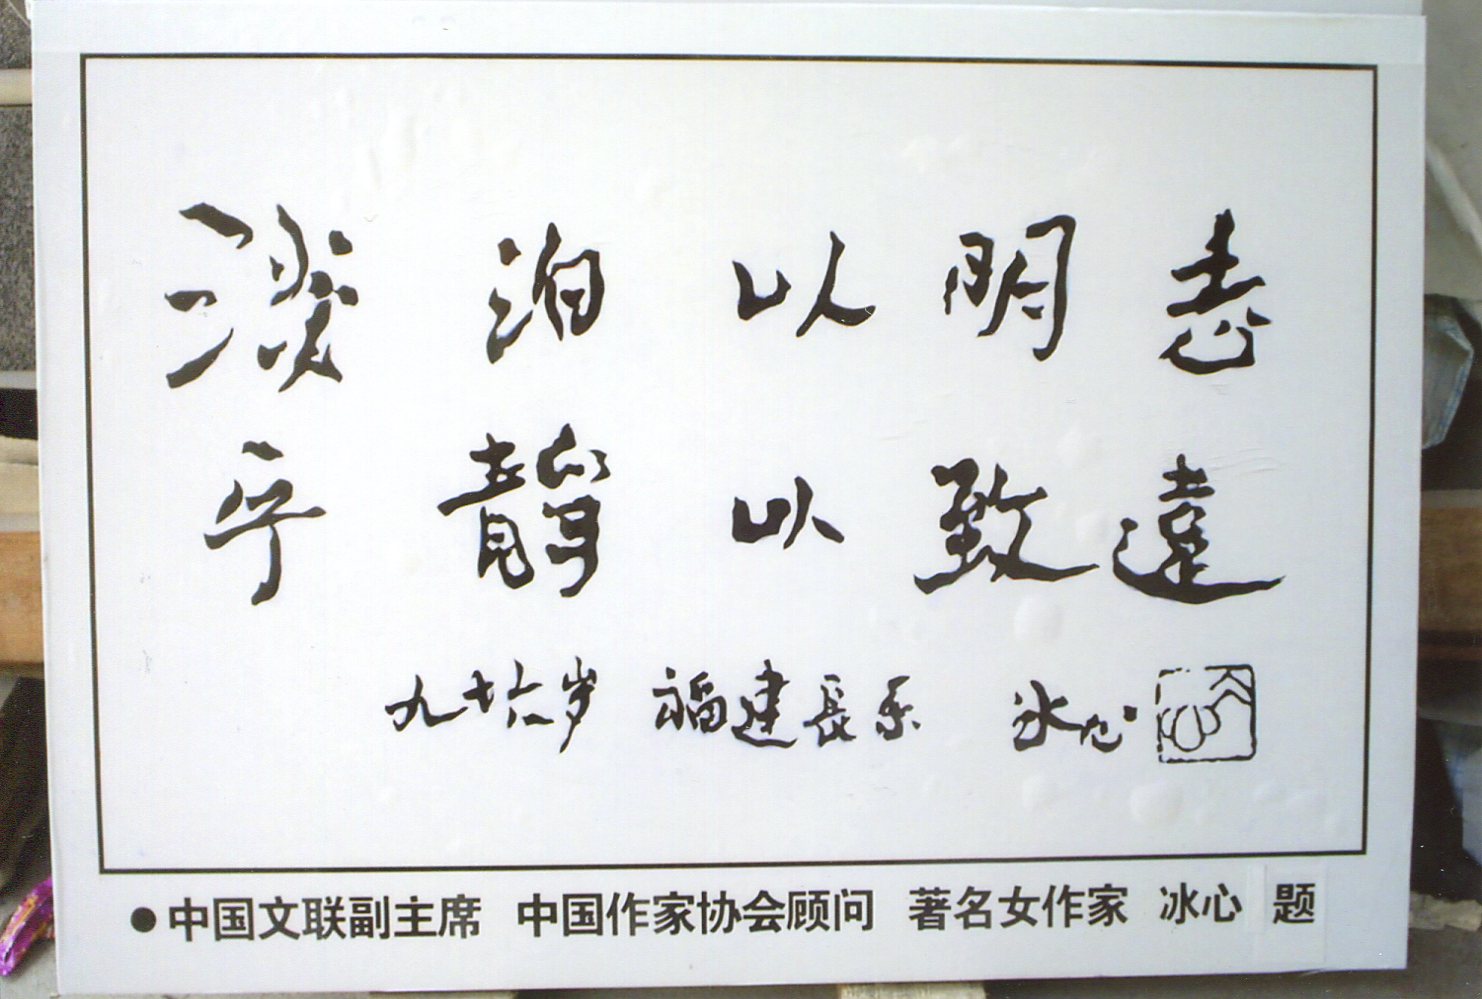 淡泊以明志
宁靜以致遠
九十六岁 福建長乐 冰心
●中国文联副主席 中国作家协会顾问 著名女作家 冰心 题